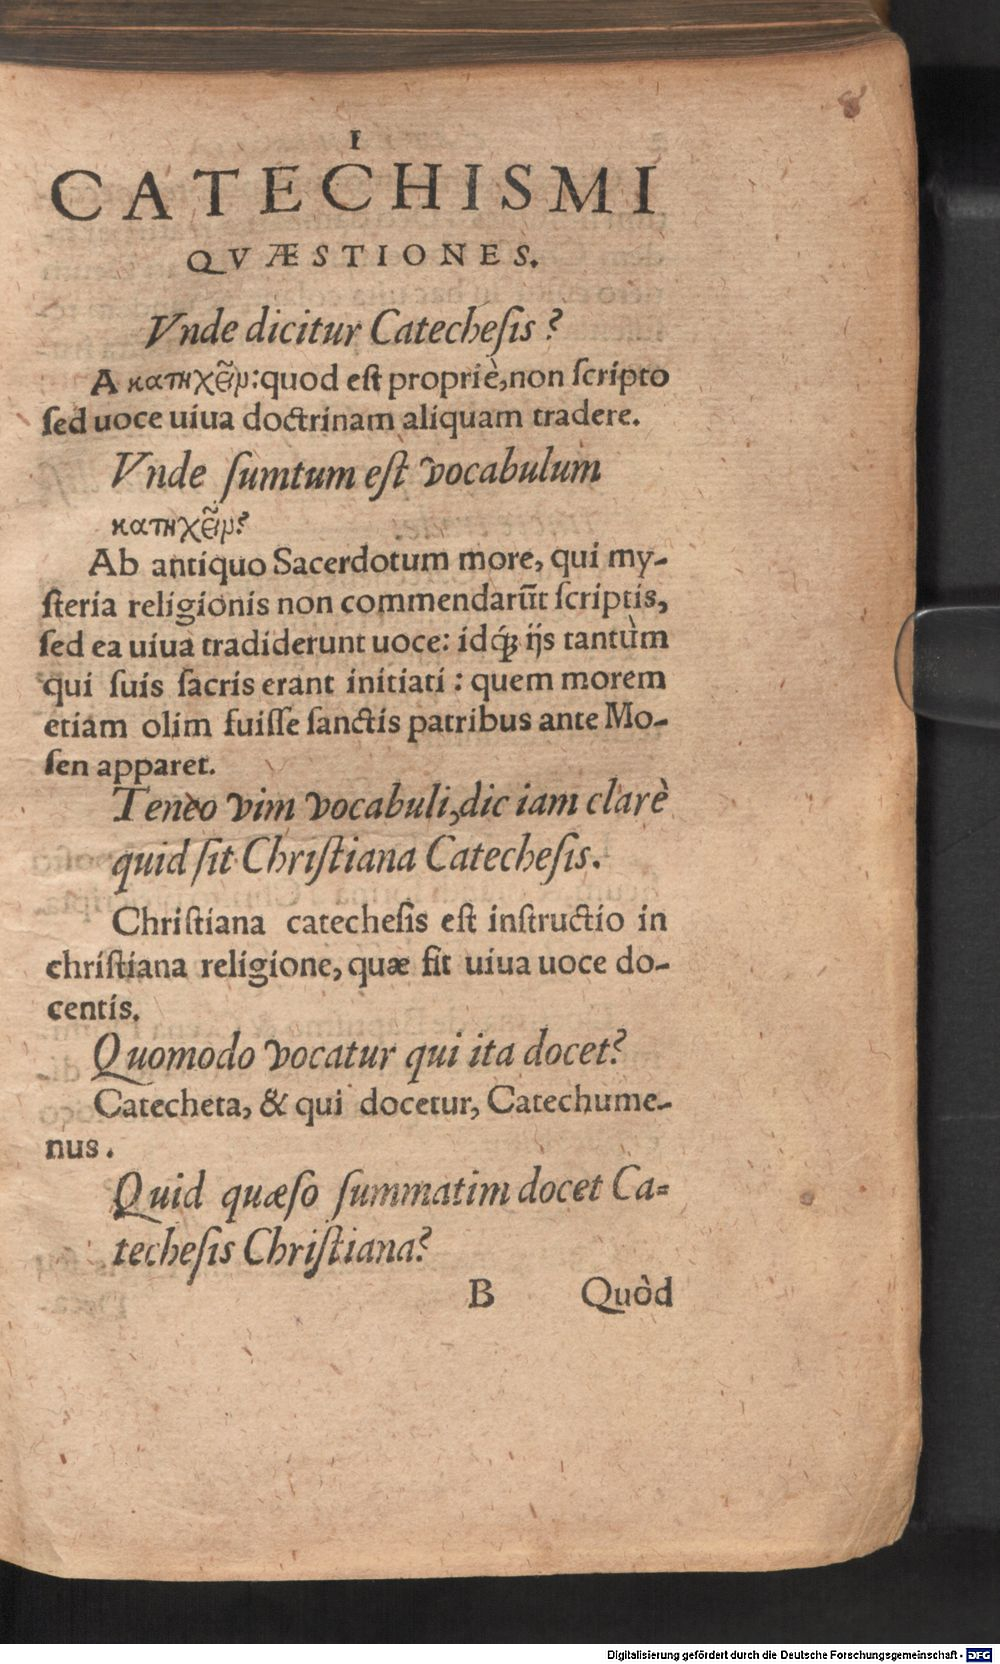 8
1
CATECHISMI
QVÆSTIONES.
Vnde dicitur Catechesis?
A κατηχεῖν: quod est propriè, non scripto
sed uoce uiua doctrinam aliquam tradere.
Vnde sumtum est vocabulum
κατηχεῖν?
Ab antiquo Sacerdotum more, qui my-
steria religionis non commendarūt scriptis,
sed ea uiua tradiderunt uoce: idq́ꝫ ijs tantùm
qui suis sacris erant initiati: quem morem
etiam olim fuisse sanctis patribus ante Mo-
sen apparet.
Teneo vim vocabuli, dic iam clarè
quid sit Christiana Catechesis.
Christiana catechesis est instructio in
christiana religione, quæ fit uiua uoce do-
centis.
Quomodo vocatur qui ita docet?
Catecheta, & qui docetur, Catechume-
nus.
Quid quæso summatim docet Ca-
techesis Christiana?
B Quòd
Digitalisierung gefördert durch die Deutsche Forschungsgemeinschaft - DFG